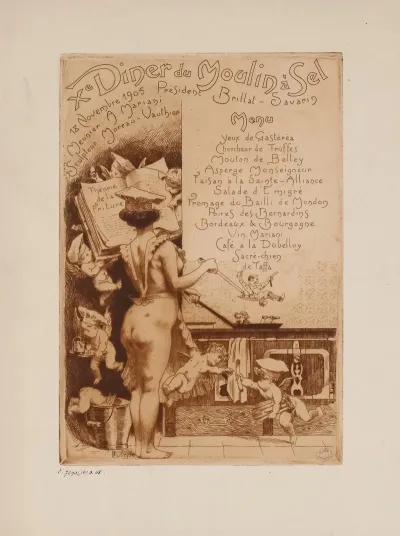 Xe Diner du Moulin à Sel
13 Novembre 1905 Président Brillat-Savarin
Meunier A Mariani
Sculpteur Moreau-Vauthier
Menu
Yeux de Gastéréa
Chercheur de Truffes
Mouton de Belley
Asperge Monseigneur
Faisan a la Sainte-Alliance
Salade d'Emigré
Fromage du Bailli de Mendon
Poires des Bernardins
Bordeaux & Bourgogne
Vin Mariani
Café a la Dubelloy
Sacré-chien
de Taffa
Théorie
de la
Friture